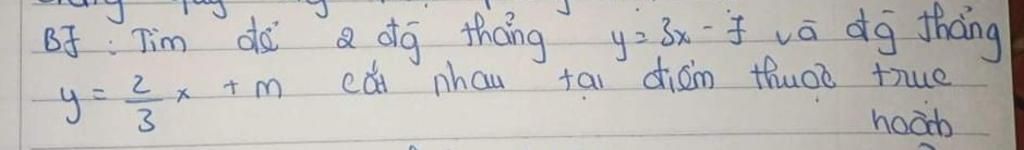 B7 : Tìm để 2 đg̃ thẳng y = 3x - 7 và đg̃ thẳng
y = 2/3 x + m cắt nhau tại điểm thuộc trục
hoành